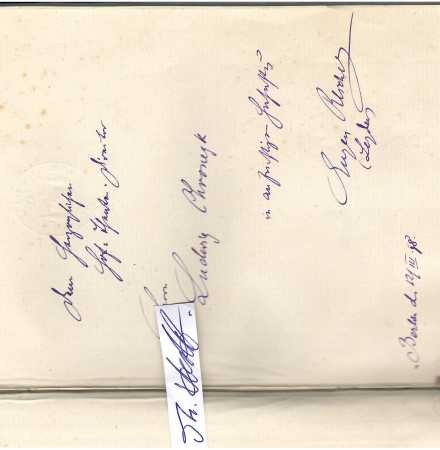 Dem Herzoglichen
Hof-Theater-Director
Herrn
Ludwig Chronegk
in aufrichtiger Hochachtung
Eugen
Berlin d. 12/III 78.
Th.